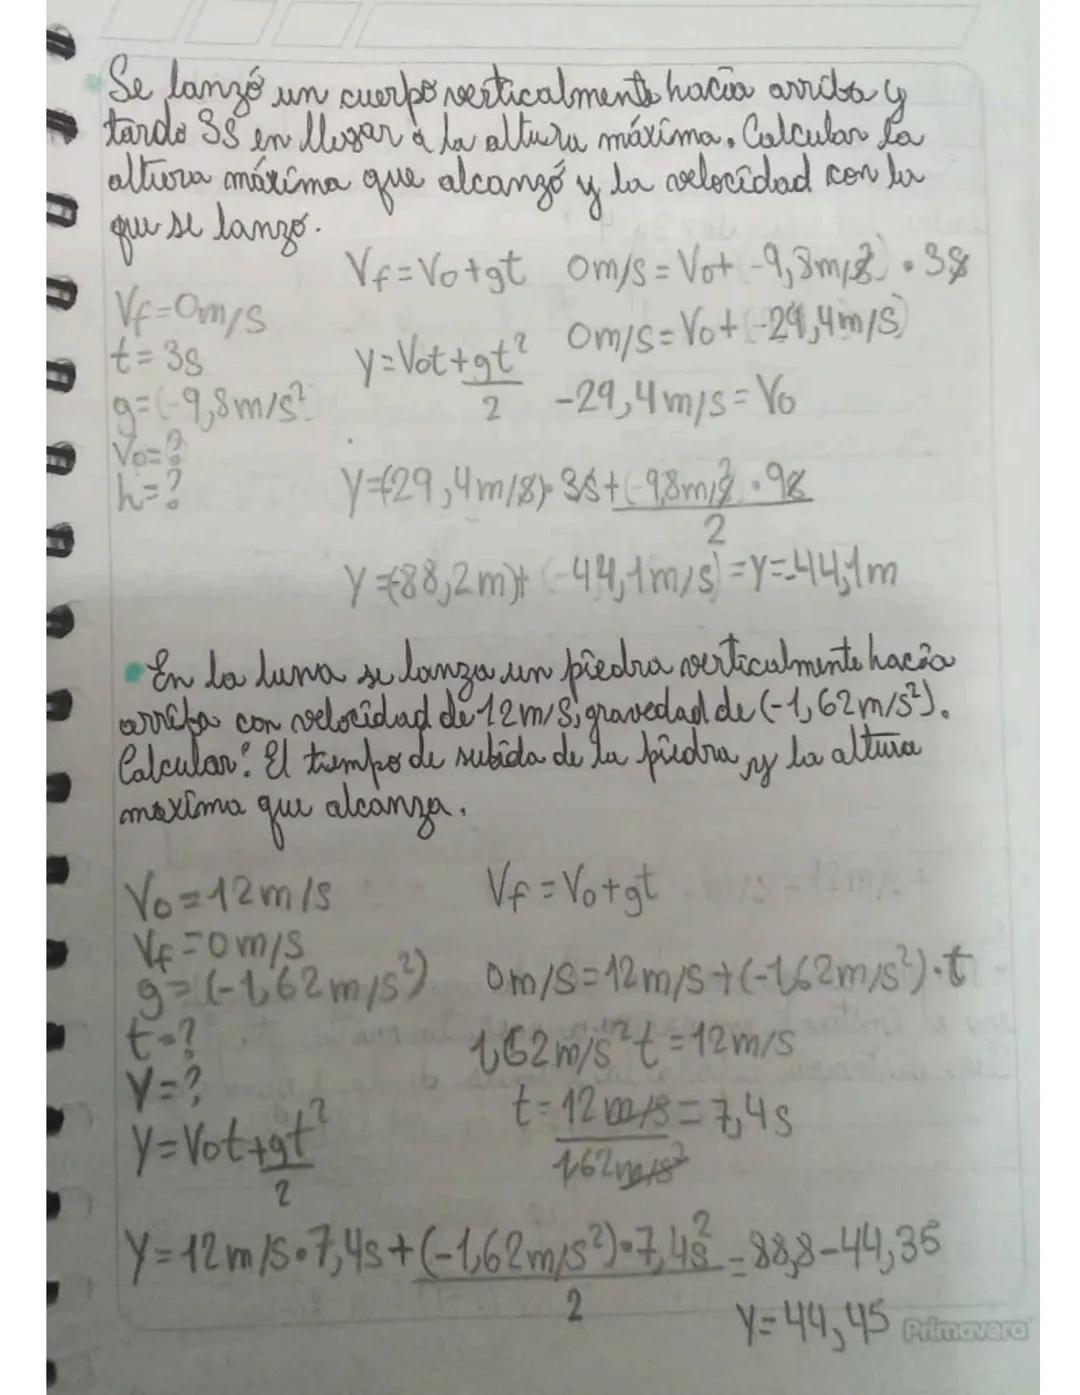 Se lanzó un cuerpo verticalmente hacia arriba y
tardo 3s en llegar a la altura máxima. Calcular la
altura máxima que alcanzó y la velocidad con la
que se lanzo.
Vf=Vo+gt 0m/s=Vo+(-9,8m/s²)·3s
Vf=0m/s
0m/s=Vo+(-29,4m/s)
t=3s
y=Vot+gt²/2
g=(-9,8m/s²)
-29,4m/s=Vo
Vo=?
h=?
Y=(-29,4m/s)·3s+(-9,8m/s²·9s/2
Y=(-88,2m)+(-44,1m/s)=Y=-44,1m
En la luna se lanza un piedra verticalmente hacia
arriba con velocidad de 12m/s, gravedad de (-1,62m/s²).
Calcular: El tiempo de subida de la piedra y la altura
maxima que alcanza.
Vo=12m/s Vf=Vo+gt
Vf=0m/s
g=(-1,62m/s²) 0m/s=12m/s+(-1,62m/s²)·t
t=?
1,62m/s²t=12m/s
Y=?
t=12m/s/1,62m/s²=7,4s
Y=Vot+gt²/2
Y=12m/s·7,4s+(-1,62m/s²)·7,4s²/2=88,8-44,35
Y=44,45
Primavera